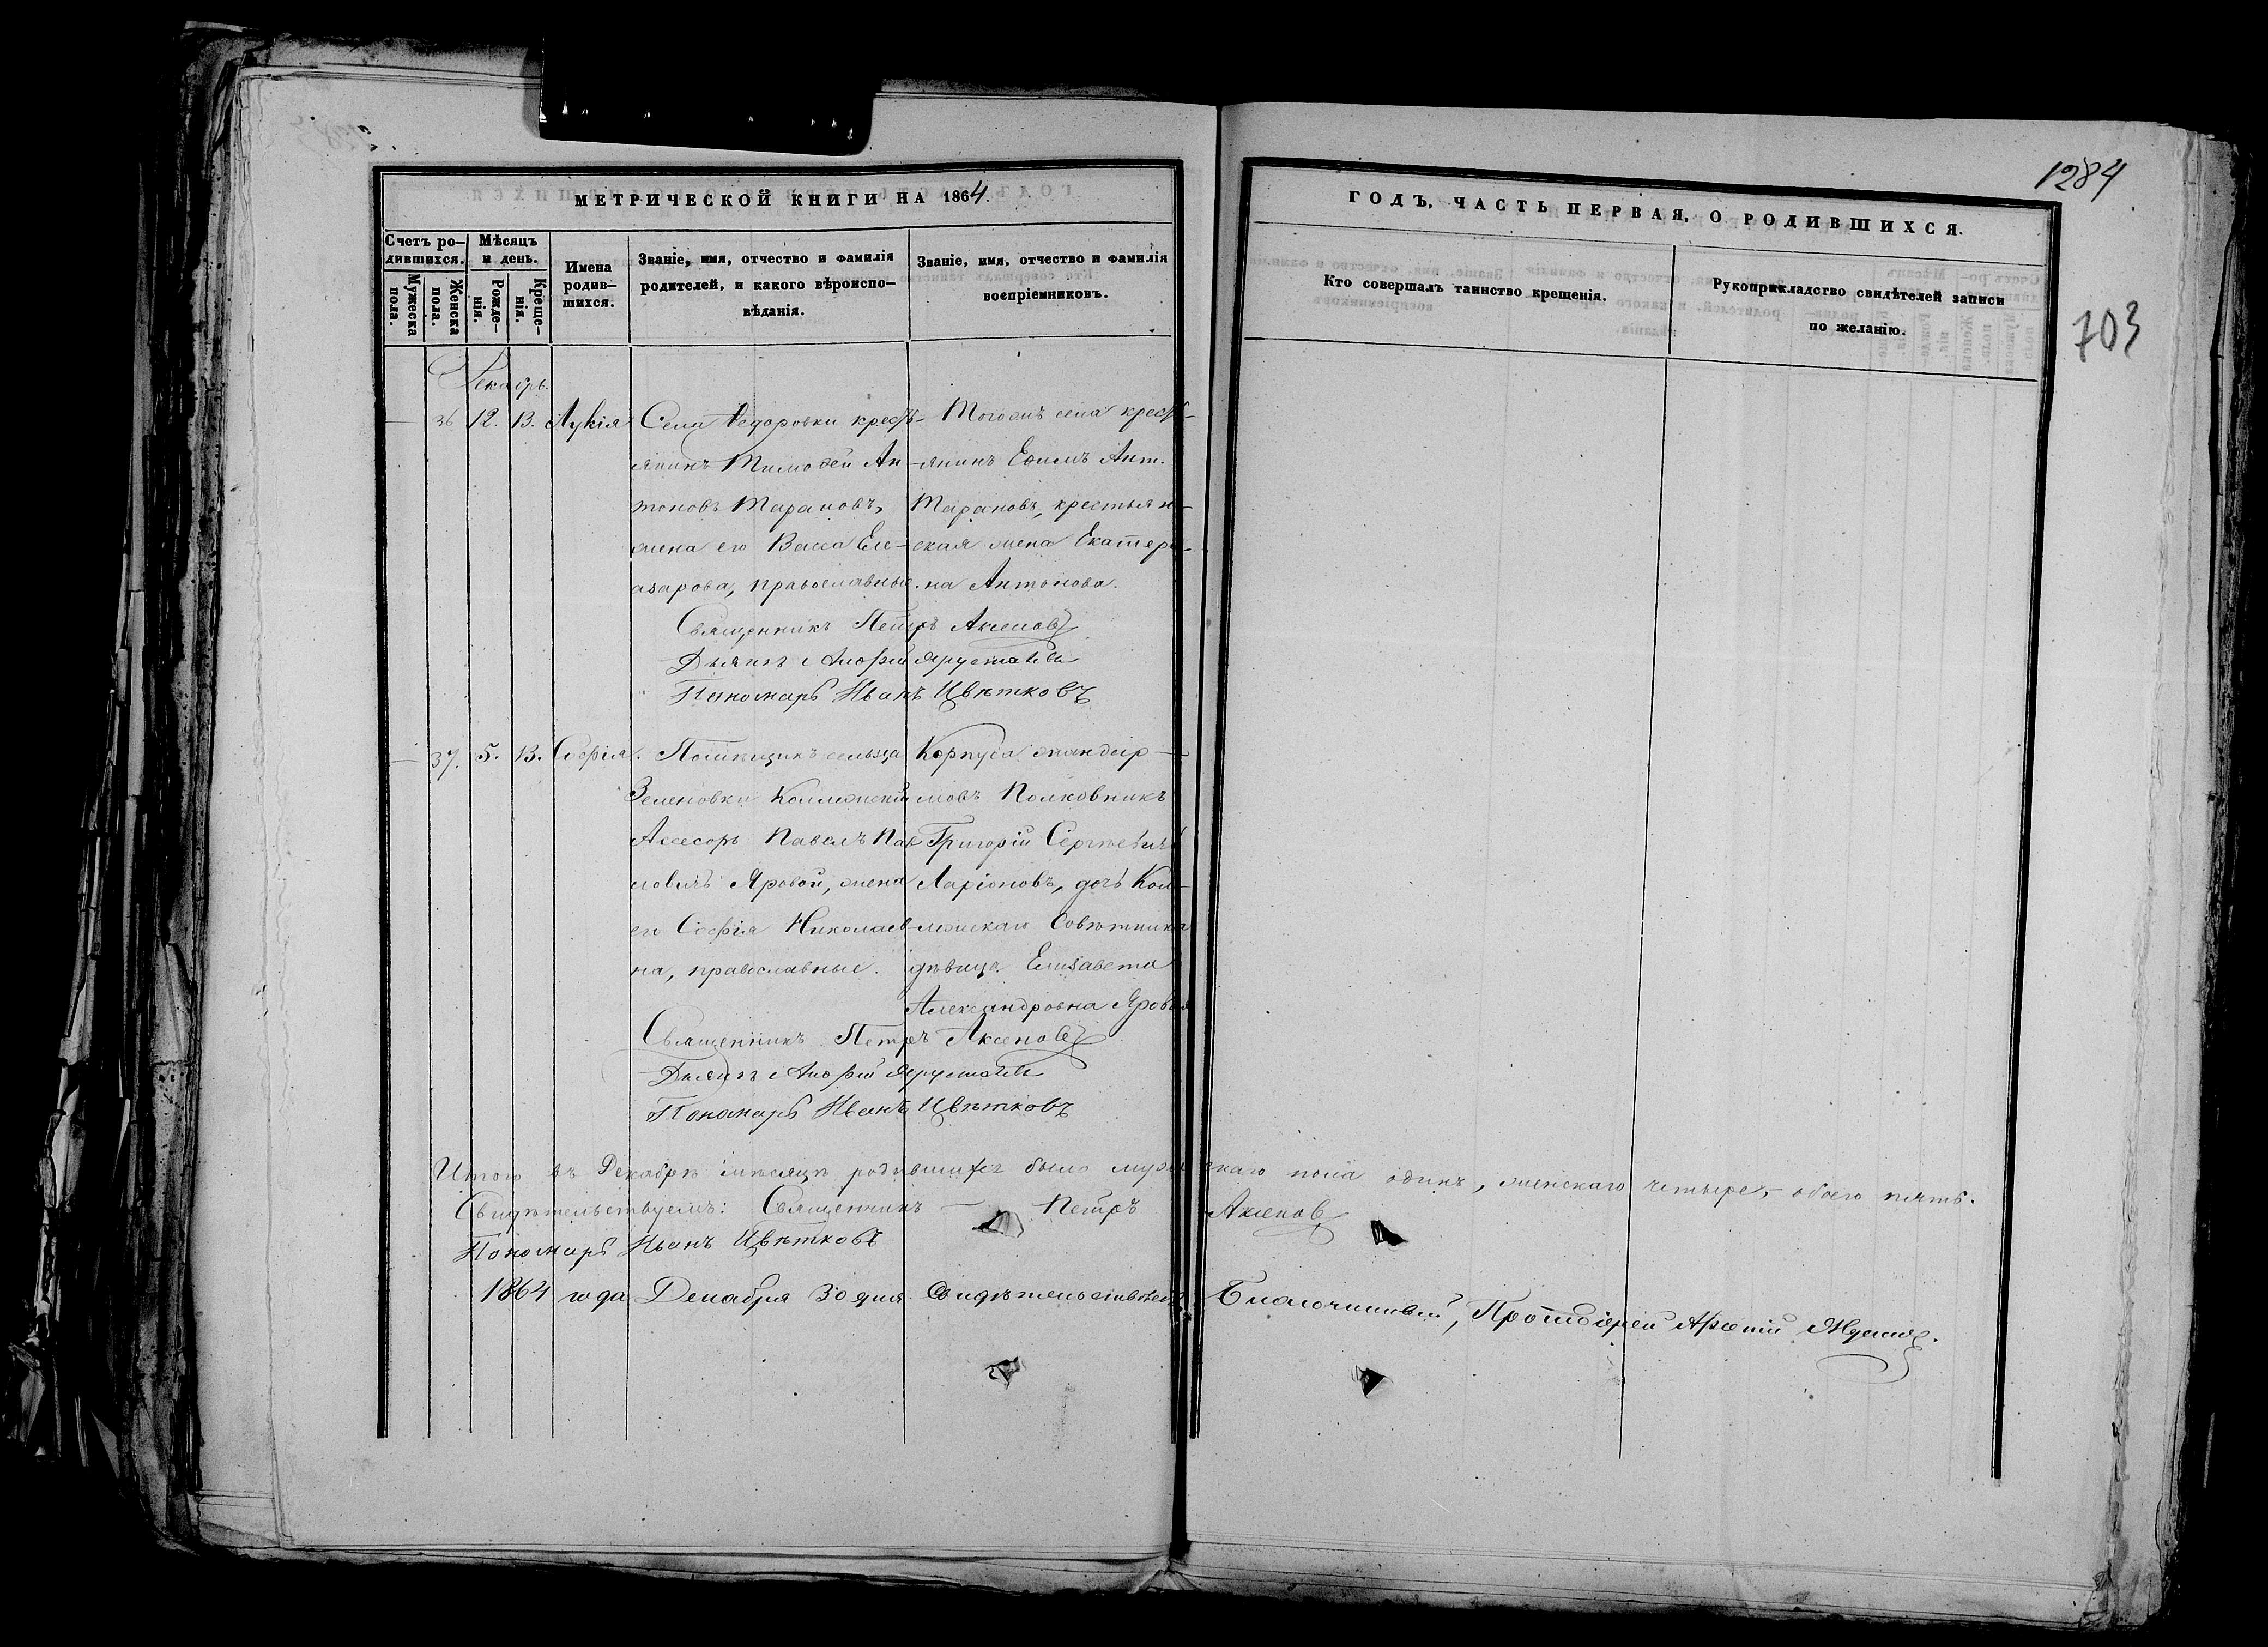 1284
703
МЕТРИЧЕСКОЙ КНИГИ НА 1864.
ГОДЪ, ЧАСТЬ ПЕРВАЯ, О РОДИВШИХСЯ.
Счетъ ро-
дившихся.
Мужеска
пола.
Женска
пола.
Мѣсяцъ
и день.
Рожде-
нія.
Креще-
нія.
Имена
родив-
шихся.
Званіе, имя, отчество и фамилія
родителей, и какого вѣроиспо-
вѣданія.
Званіе, имя, отчество и фамилія
воспріемниковъ.
Кто совершалъ таинство крещенія.
Рукоприкладство свидѣтелей записи
по желанію.
Декабрь.
— 36 12. 13. Лукія
Села Ѳедоровки кресть-
янинъ Тимоѳей Ан-
тоновъ Тарановъ,
жена его Васса Еле-
азарова, православные.
Тогожъ села кресть-
янинъ Ефимъ Ант.
Тарановъ, крестьян-
ская жена Екатери-
на Антонова.
Священникъ Петръ Аксеновъ
Дьякъ
Пономарь Иванъ Цвѣтковъ
— 37. 5. 13. Софія.
Помѣщикъ сельца
Зеленовки Коллежскій
Ассесоръ Павелъ Пав
ловичъ Яровой, жена
его Софія Николаев-
на, православные.
Корпуса жандар-
мовъ Полковникъ
Григорій Сергѣевичъ
Ларіоновъ, дочь Кол-
лежскаго Совѣтника
дѣвица Елизавета
Александровна Яровая
Священникъ Петръ Аксеновъ
Дьякъ
Пономарь Иванъ Цвѣтковъ
Итого въ Декабрѣ мѣсяцѣ родившихся было мужескаго пола одинъ, женскаго четыре, – обоего пять.
Свидѣтельствуемъ: Священникъ — Петръ Аксеновъ
Пономарь Иванъ Цвѣтковъ
1864 года Декабря 30 дня свидѣтельствовалъ Благочинный, Протоіерей Арсеній